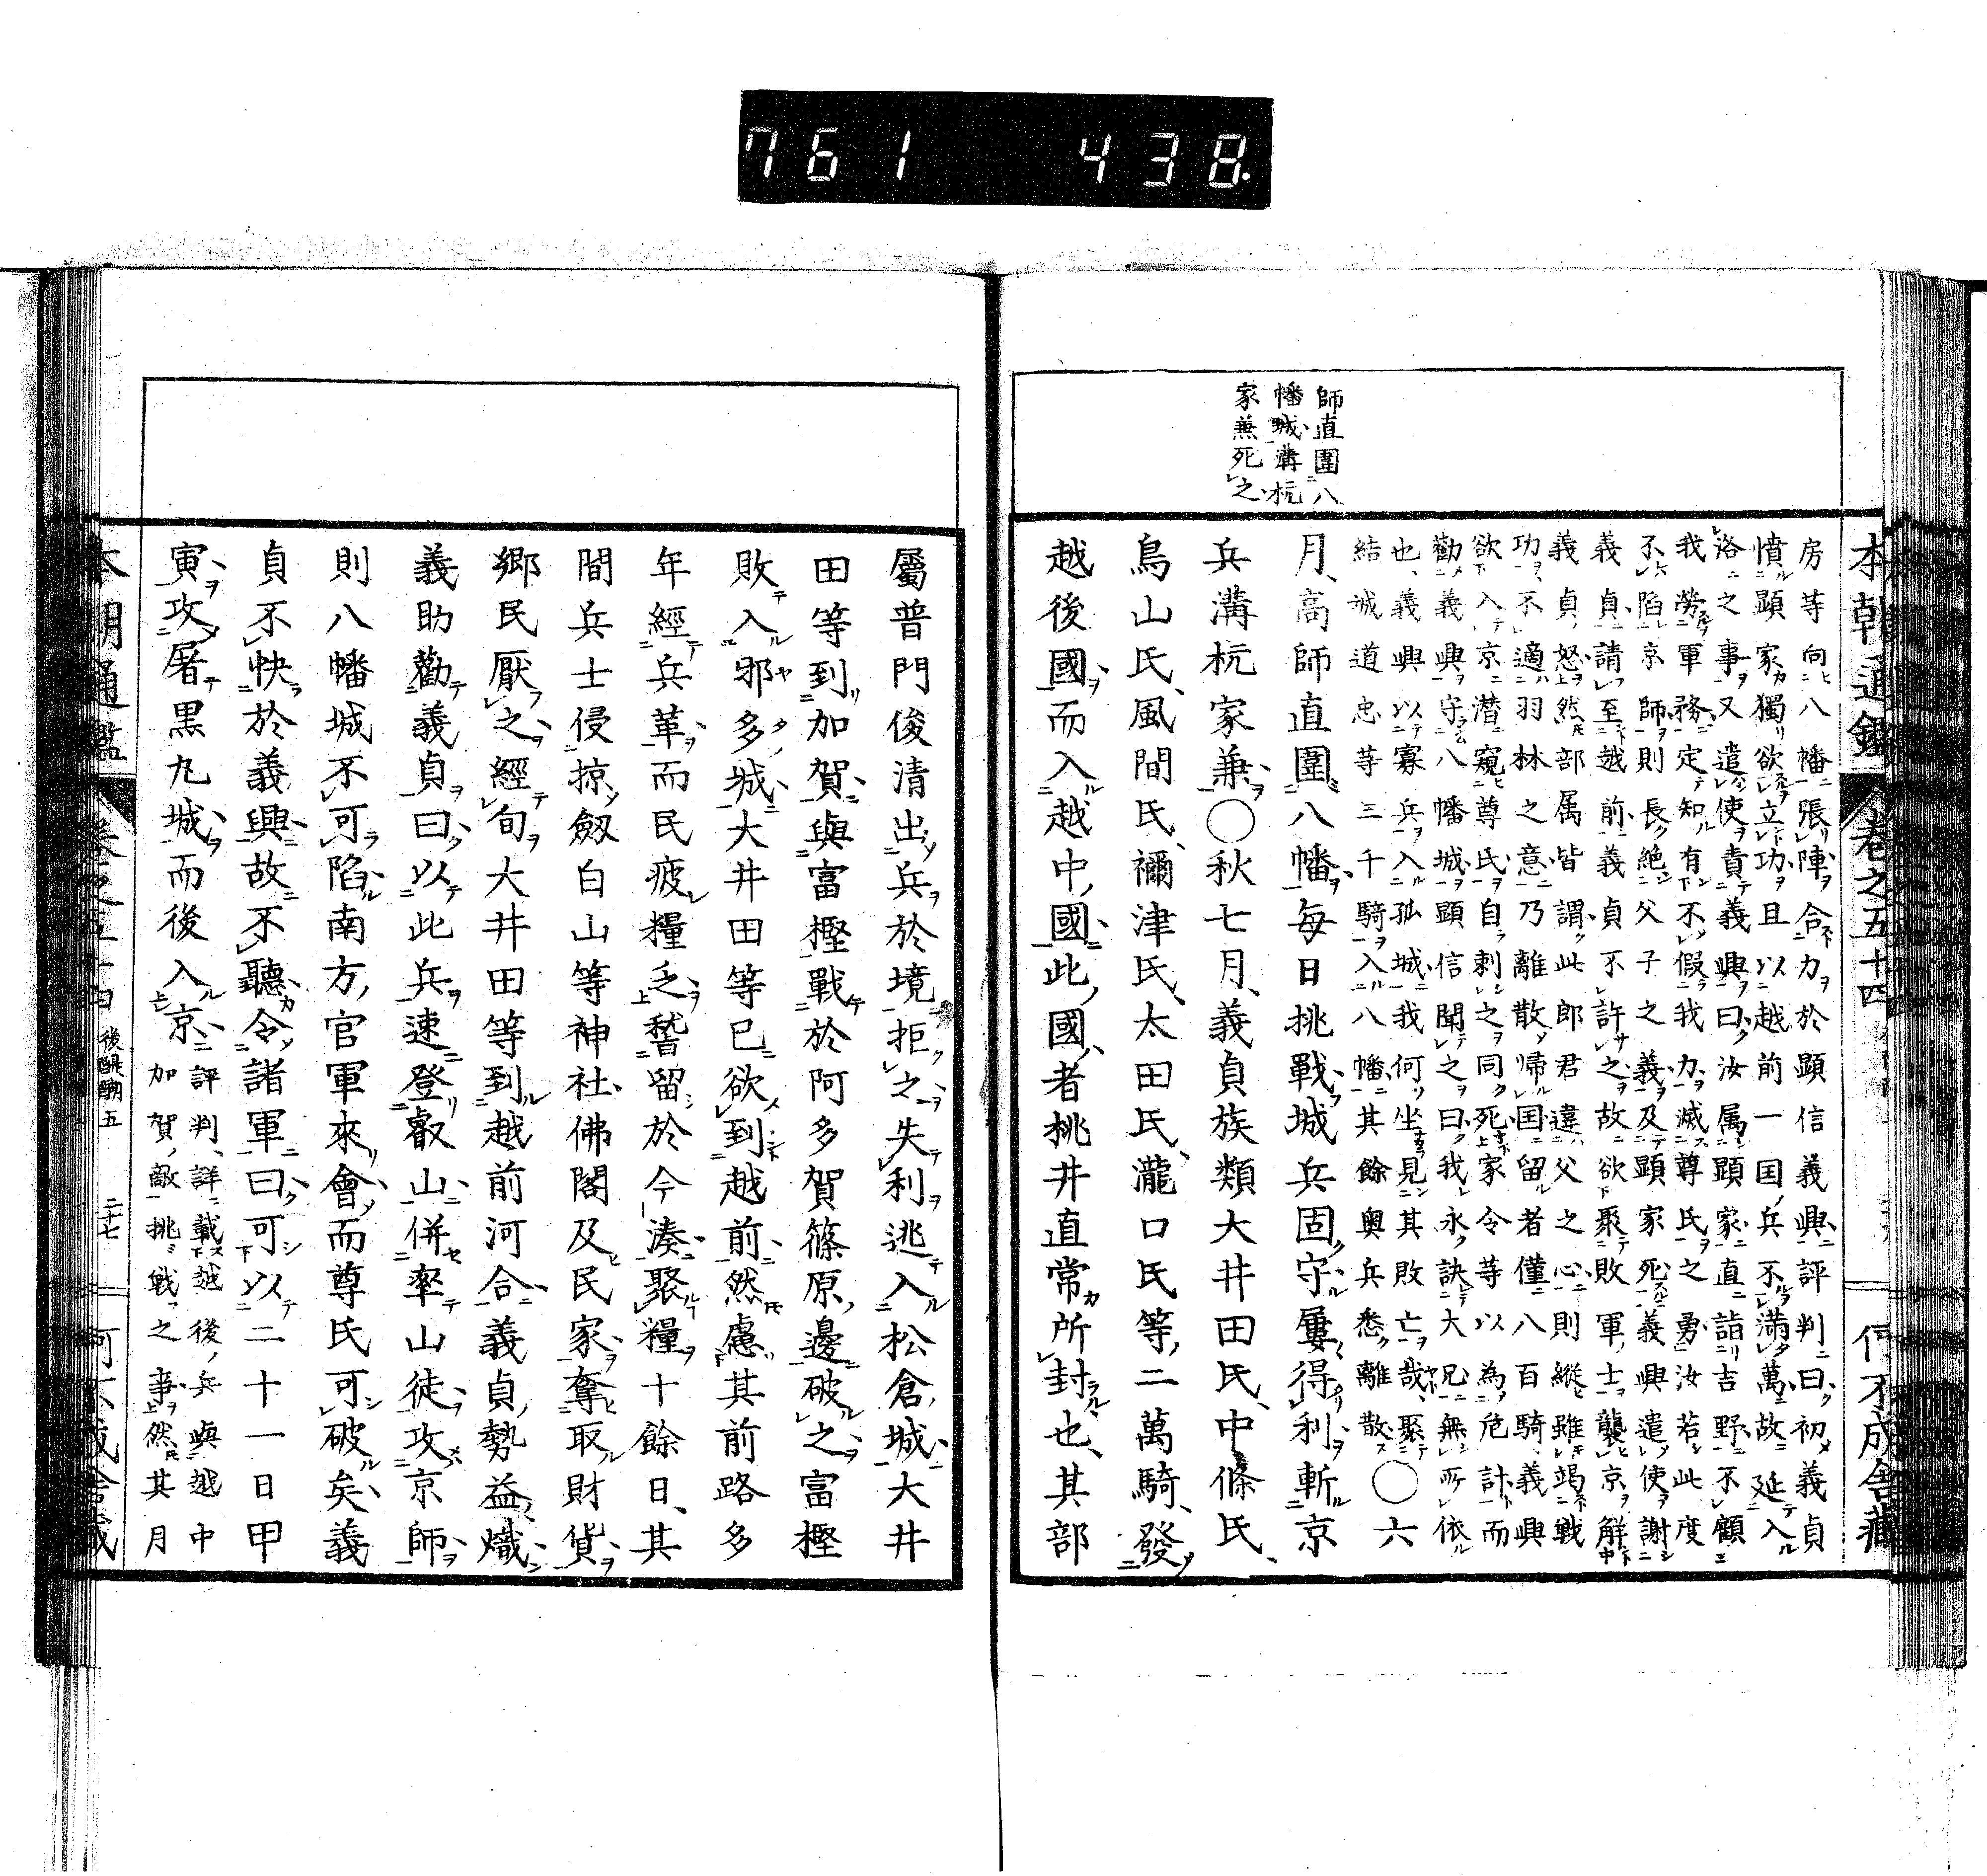 761 438.
本朝通鑑 卷之五十四
師直圍八
幡城溝杭
家兼死之
房等向八幡張陣合力於顕信義興評判曰初義貞
憤顕家獨欲立功且以越前一国兵不滿萬故延入
洛之事又遣使責義興曰汝属顕家直詣吉野不顧
我勞軍務定知有不假我力滅尊氏之勇汝若此度
不陥京師則長絶父子之義及顕家死義興遣使謝
義貞請至越前義貞不許之故欲聚敗軍士襲京解
義貞怒然部属皆謂此郎君違父之心則縦雖竭戦
功不適羽林之意乃離散帰国留者僅八百騎義興
欲入京潜窺尊氏自刺之同死家令等以為危計而
勸義興守八幡城顕信聞之曰我永訣大兄無所依
也義興以寡兵入孤城我何坐見其敗亡哉聚
結城道忠等三千騎入八幡其餘奥兵悉離散〇六
月高師直圍八幡每日挑戰城兵固守屢得利斬京
兵溝杭家兼〇秋七月義貞族類大井田氏中條氏
鳥山氏風間氏禰津氏太田氏瀧口氏等二萬騎發
越後國而入越中國此國者桃井直常所封也其部
屬普門俊清出兵於境拒之失利逃入松倉城大井
田等到加賀與富樫戰於阿多賀篠原邊破之富樫
敗入邪多城大井田等已欲到越前然慮其前路多
年經兵革而民疲糧乏暫留於今湊聚糧十餘日其
間兵士侵掠劔白山等神社佛閣及民家奪取財貨
鄉民厭之經旬大井田等到越前河合義貞勢益熾
義助勸義貞曰以此兵速登叡山併率山徒攻京師
則八幡城不可陷南方官軍來會而尊氏可破矣義
貞不快於義興故不聽令諸軍曰可以二十一日甲
寅攻屠黒丸城而後入京
評判詳載越後兵與越中
加賀敵挑戦之事然其月
本朝通鑑 卷之五十四 後醍醐五 二十七